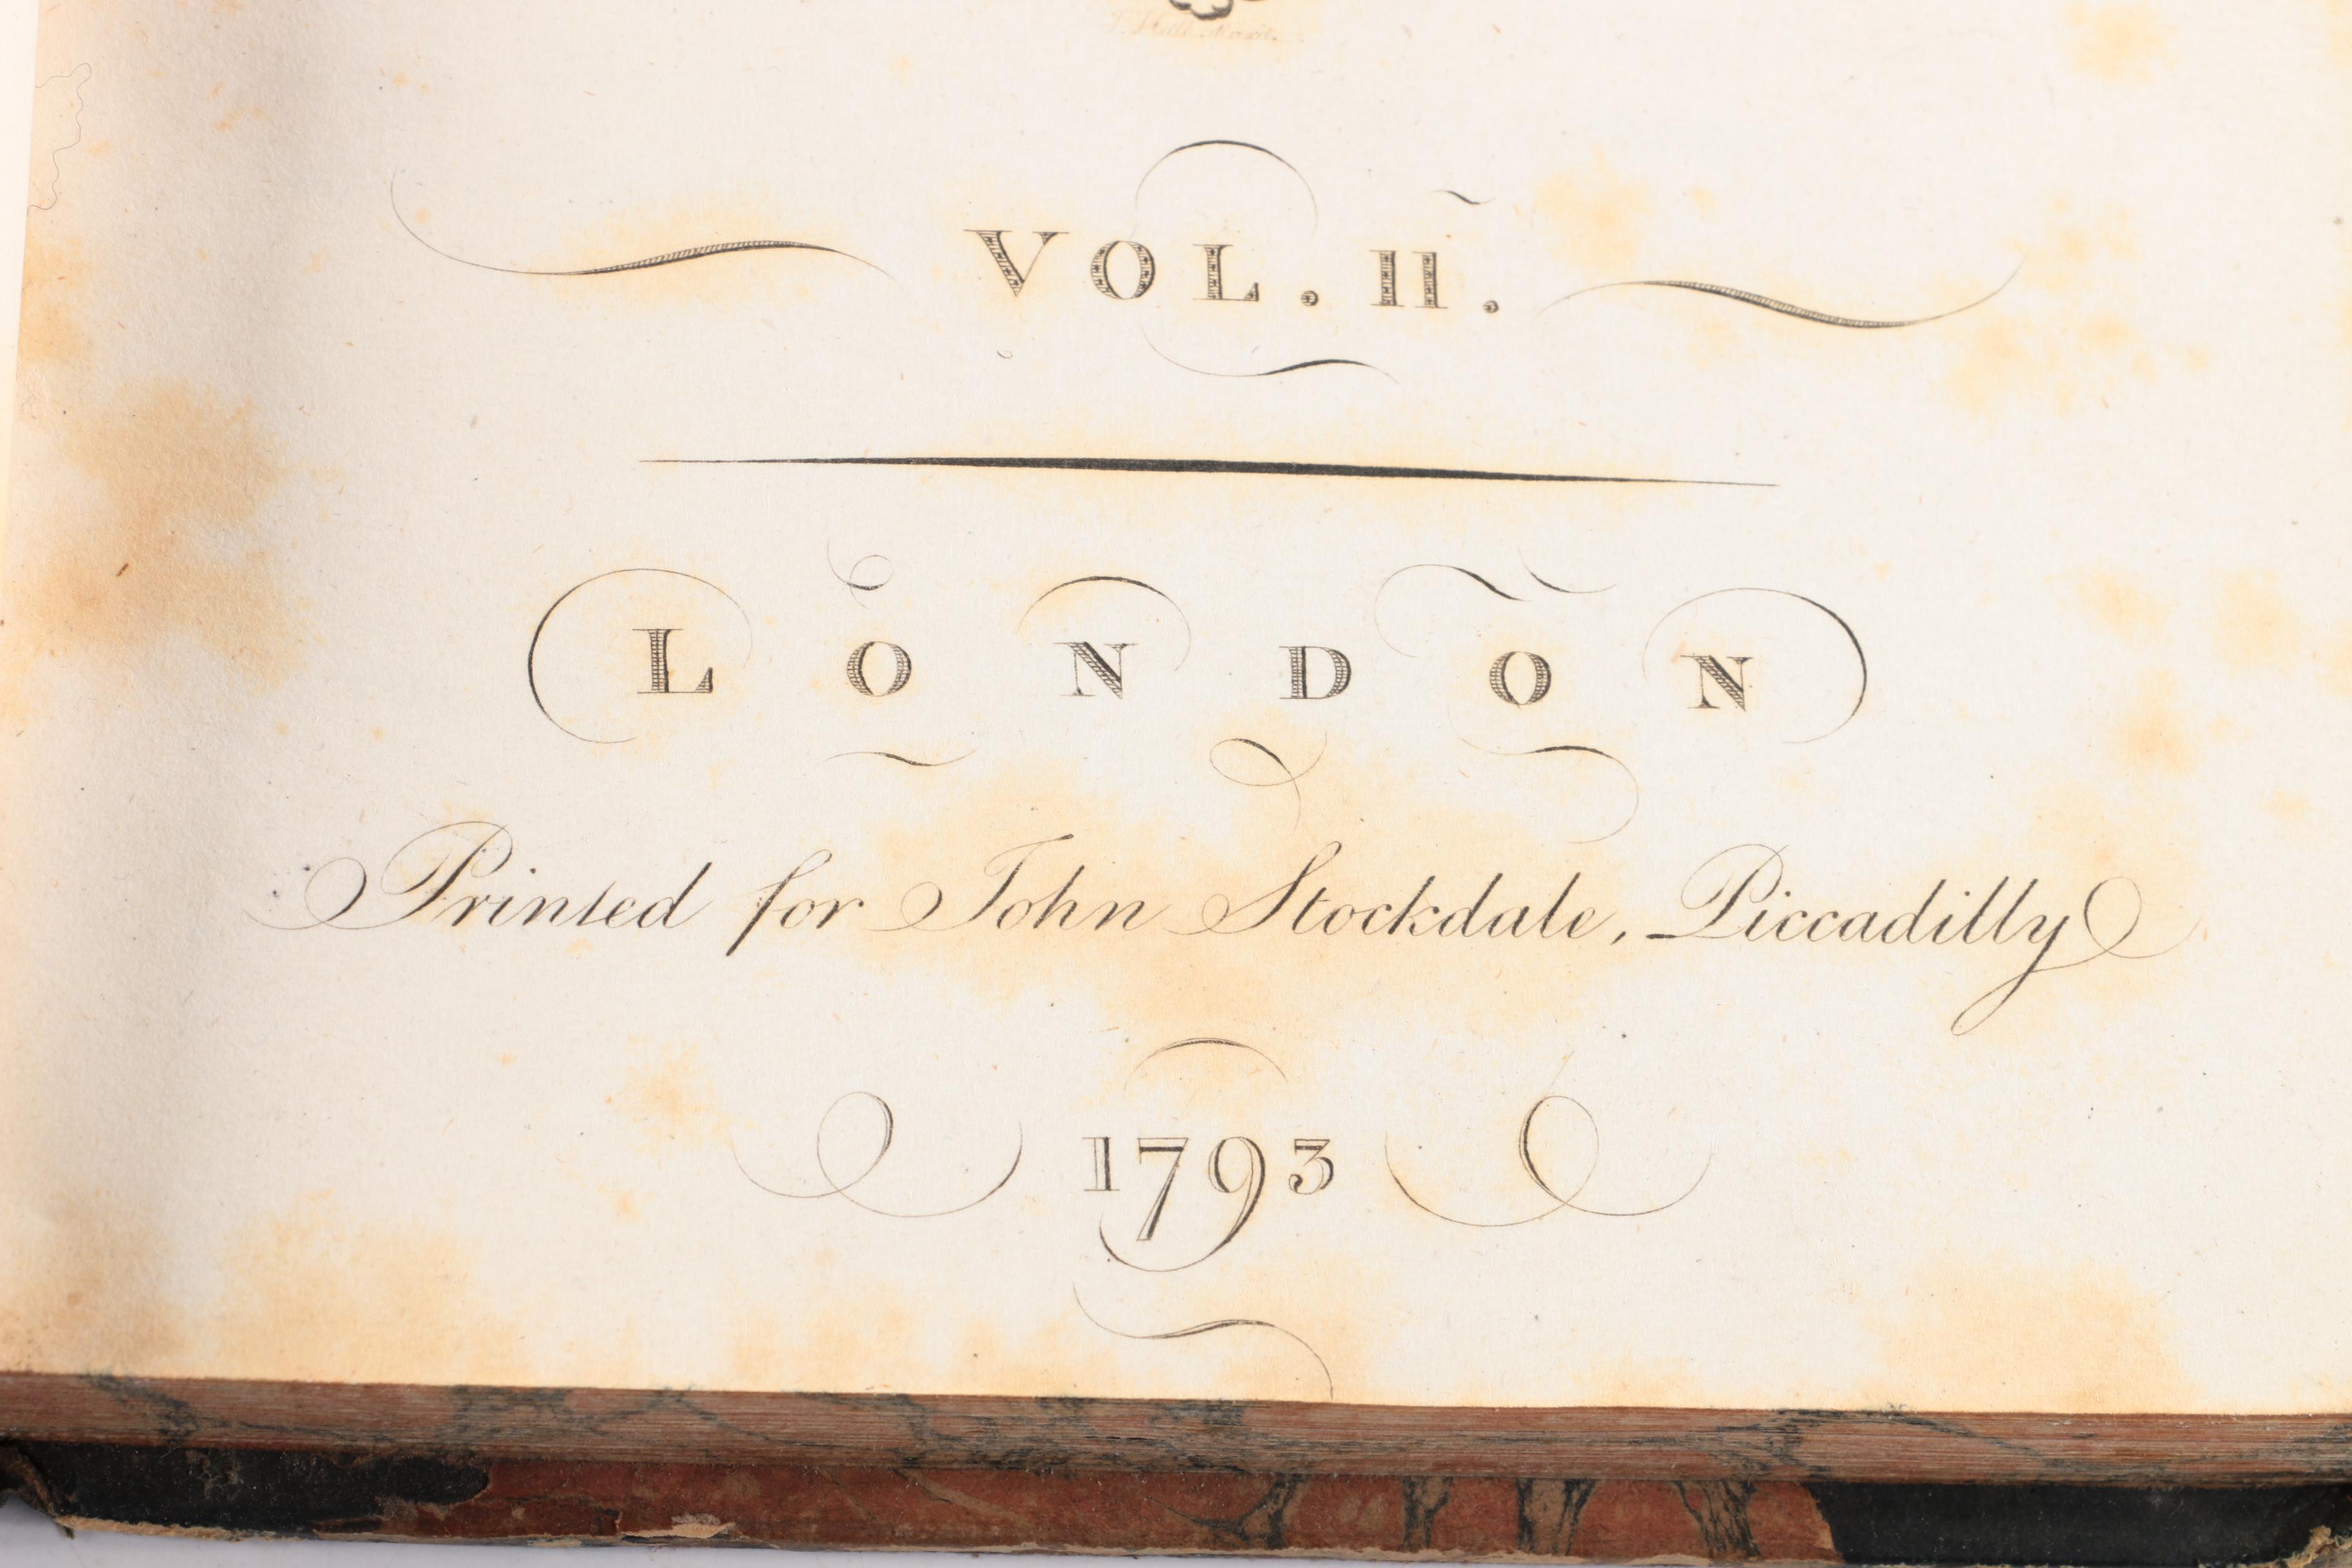 VOL. II.
LONDON
Printed for John Stockdale, Piccadilly
1793